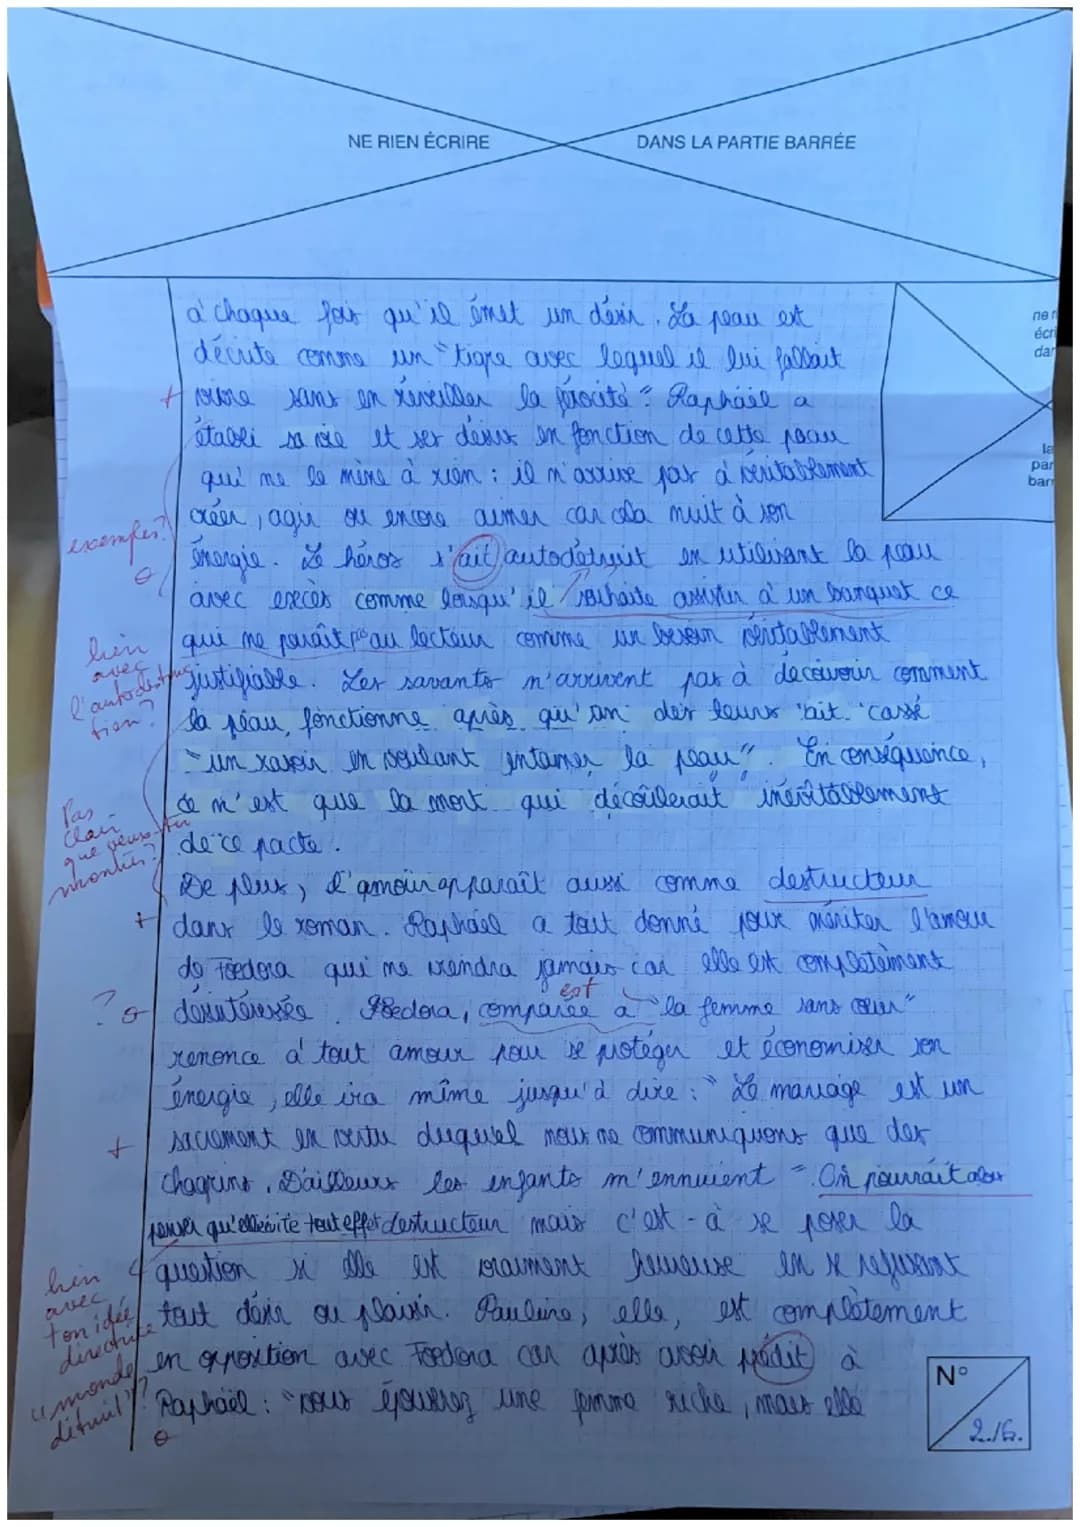 NE RIEN ÉCRIRE DANS LA PARTIE BARRÉE
à chaque fois qu'il émet un désir. La peau est
décrite comme un "tigre avec lequel il lui fallait
+ vivre sans en réveiller la férocité". Raphaël a
établi sa vie et ses désirs en fonction de cette peau
qui ne le mène à rien : il n'arrive pas à véritablement
créer, agir ou encore aimer car cela nuit à son
exemples?
énergie. Le héros s'ait autodétruit en utilisant la peau
avec excès comme lorsqu'il souhaite assister à un banquet ce
qui ne paraît pas au lecteur comme un besoin véritablement
lien avec l'autodestruction?
justifiable. Les savants n'arrivent pas à decouvrir comment
la peau fonctionne après qu'un des leurs ait cassé
"un rasoir en voulant entamer la peau". En conséquence,
ce n'est que la mort qui découlerait inévitablement
de ce pacte.
Pas clair que veux-tu montrer?
De plus, l'amour apparaît aussi comme destructeur
+ dans le roman. Raphaël a tout donné pour mériter l'amour
de Foedora qui ne viendra jamais car elle est complètement
est
? désintéressée. Foedora, comparée à "la femme sans cœur"
renonce à tout amour pour se protéger et économiser son
énergie, elle ira même jusqu'à dire : "Le mariage est un
+ sacrement en vertu duquel nous ne communiquons que des
chagrins. D'ailleurs les enfants m'ennuient". On pourrait alors
penser qu'elle évite tout effet destructeur mais c'est-à se poser la
question si elle est vraiment heureuse en se refusant
tout désir ou plaisir. Pauline, elle, est complètement
en opposition avec Foedora car après avoir prédit à
Raphaël : "vous épouserez une femme riche, mais elle
lien avec ton idée directrice "monde détruit"?
ne r
écri
dar
la
par
barr
N°
2./6.